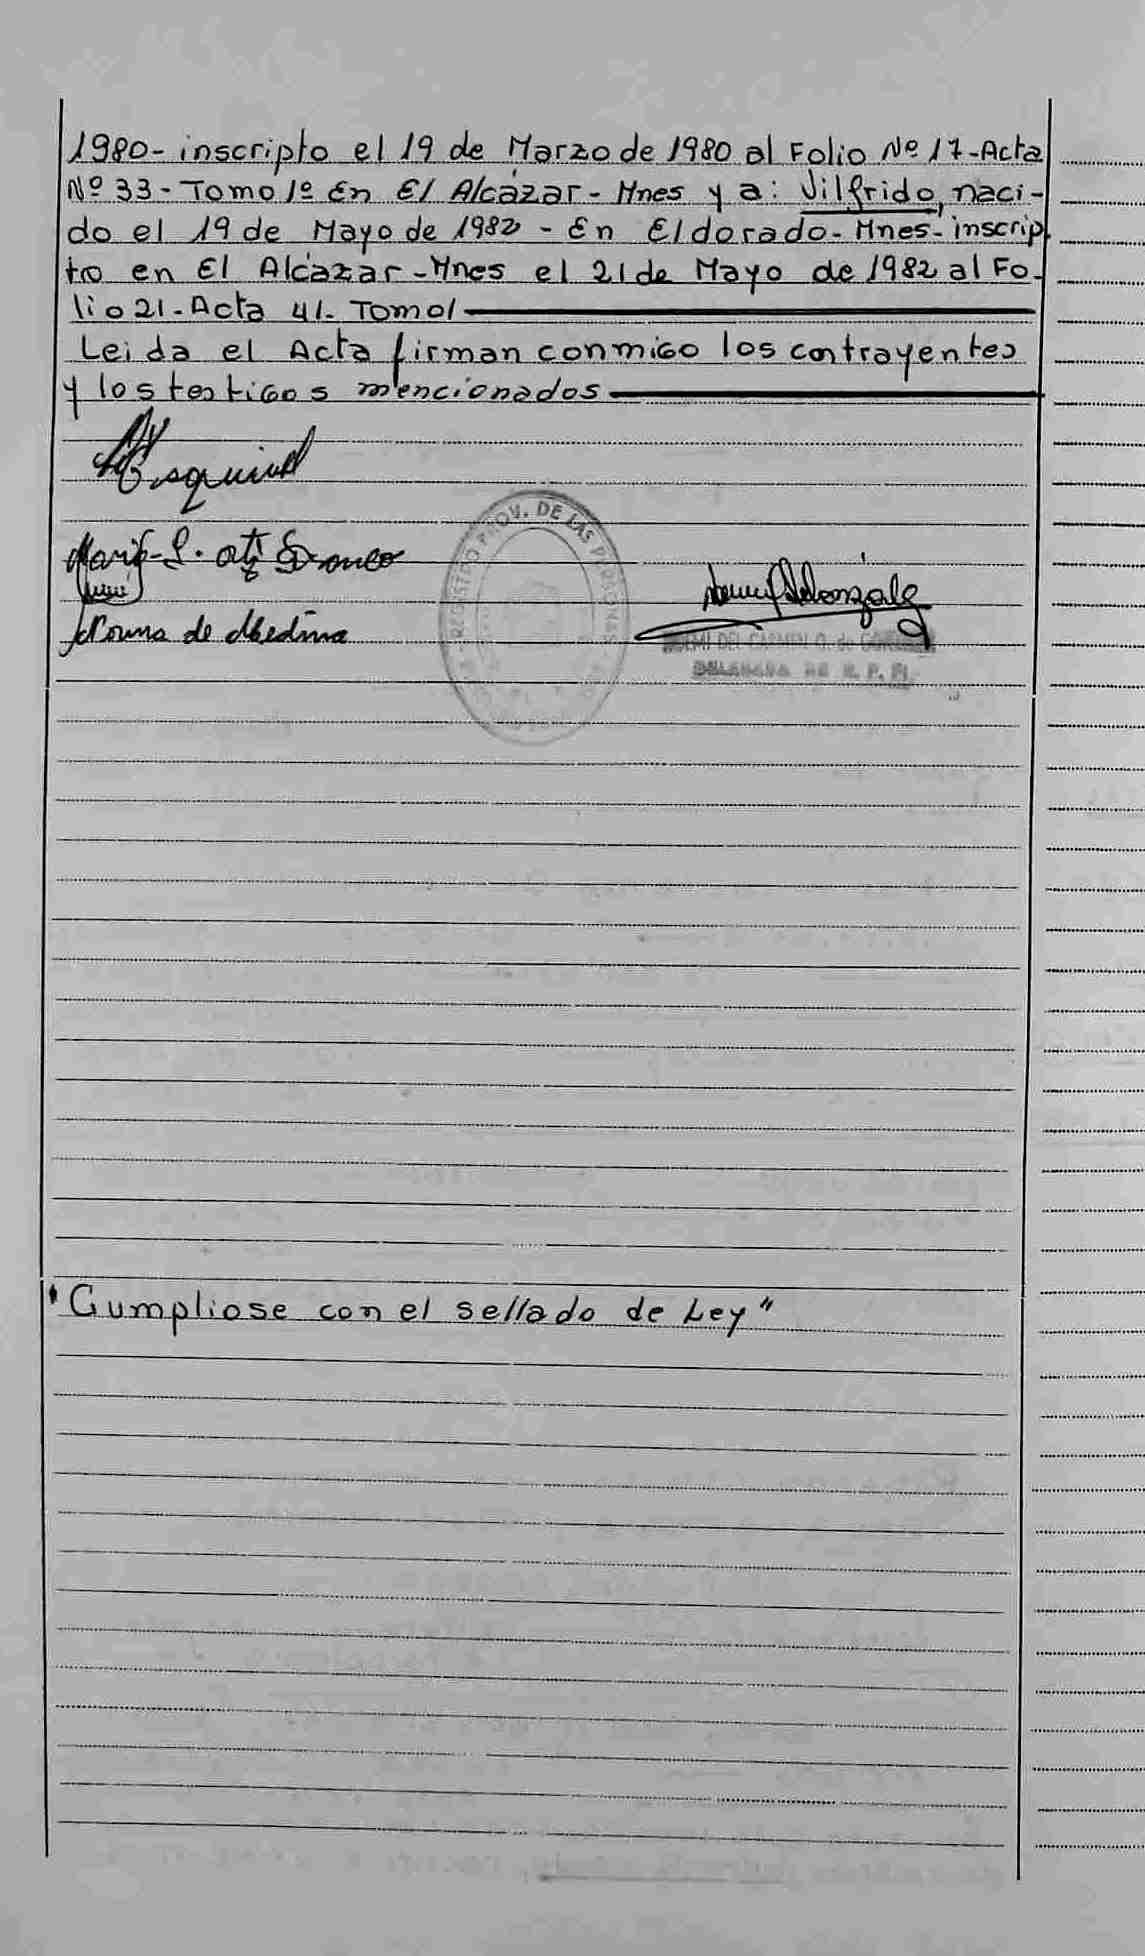 1980- inscripto el 19 de Marzo de 1980 al Folio Nº 17-Acta
Nº 33-Tomo 1º En El Alcázar-Mnes y a: Vilfrido, naci-
do el 19 de Mayo de 1982 - En Eldorado-Mnes-inscrip
to en El Alcázar-Mnes el 21 de Mayo de 1982 al Fo-
lio 21-Acta 41. Tomo 1
Leida el Acta firman conmigo los contrayentes
y los testigos mencionados
Esquivel
REGISTRO PROV. DE LAS PERSONAS
Franco
Norma de Medina
NOEMI DEL CARMEN G. de GONZALEZ
DELEGADA DE R. P.
"Cumpliose con el sellado de Ley"